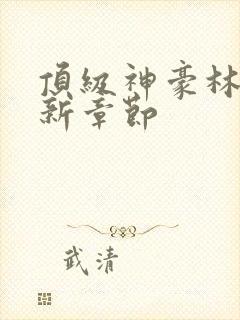 頂級神豪林
新章節
武清